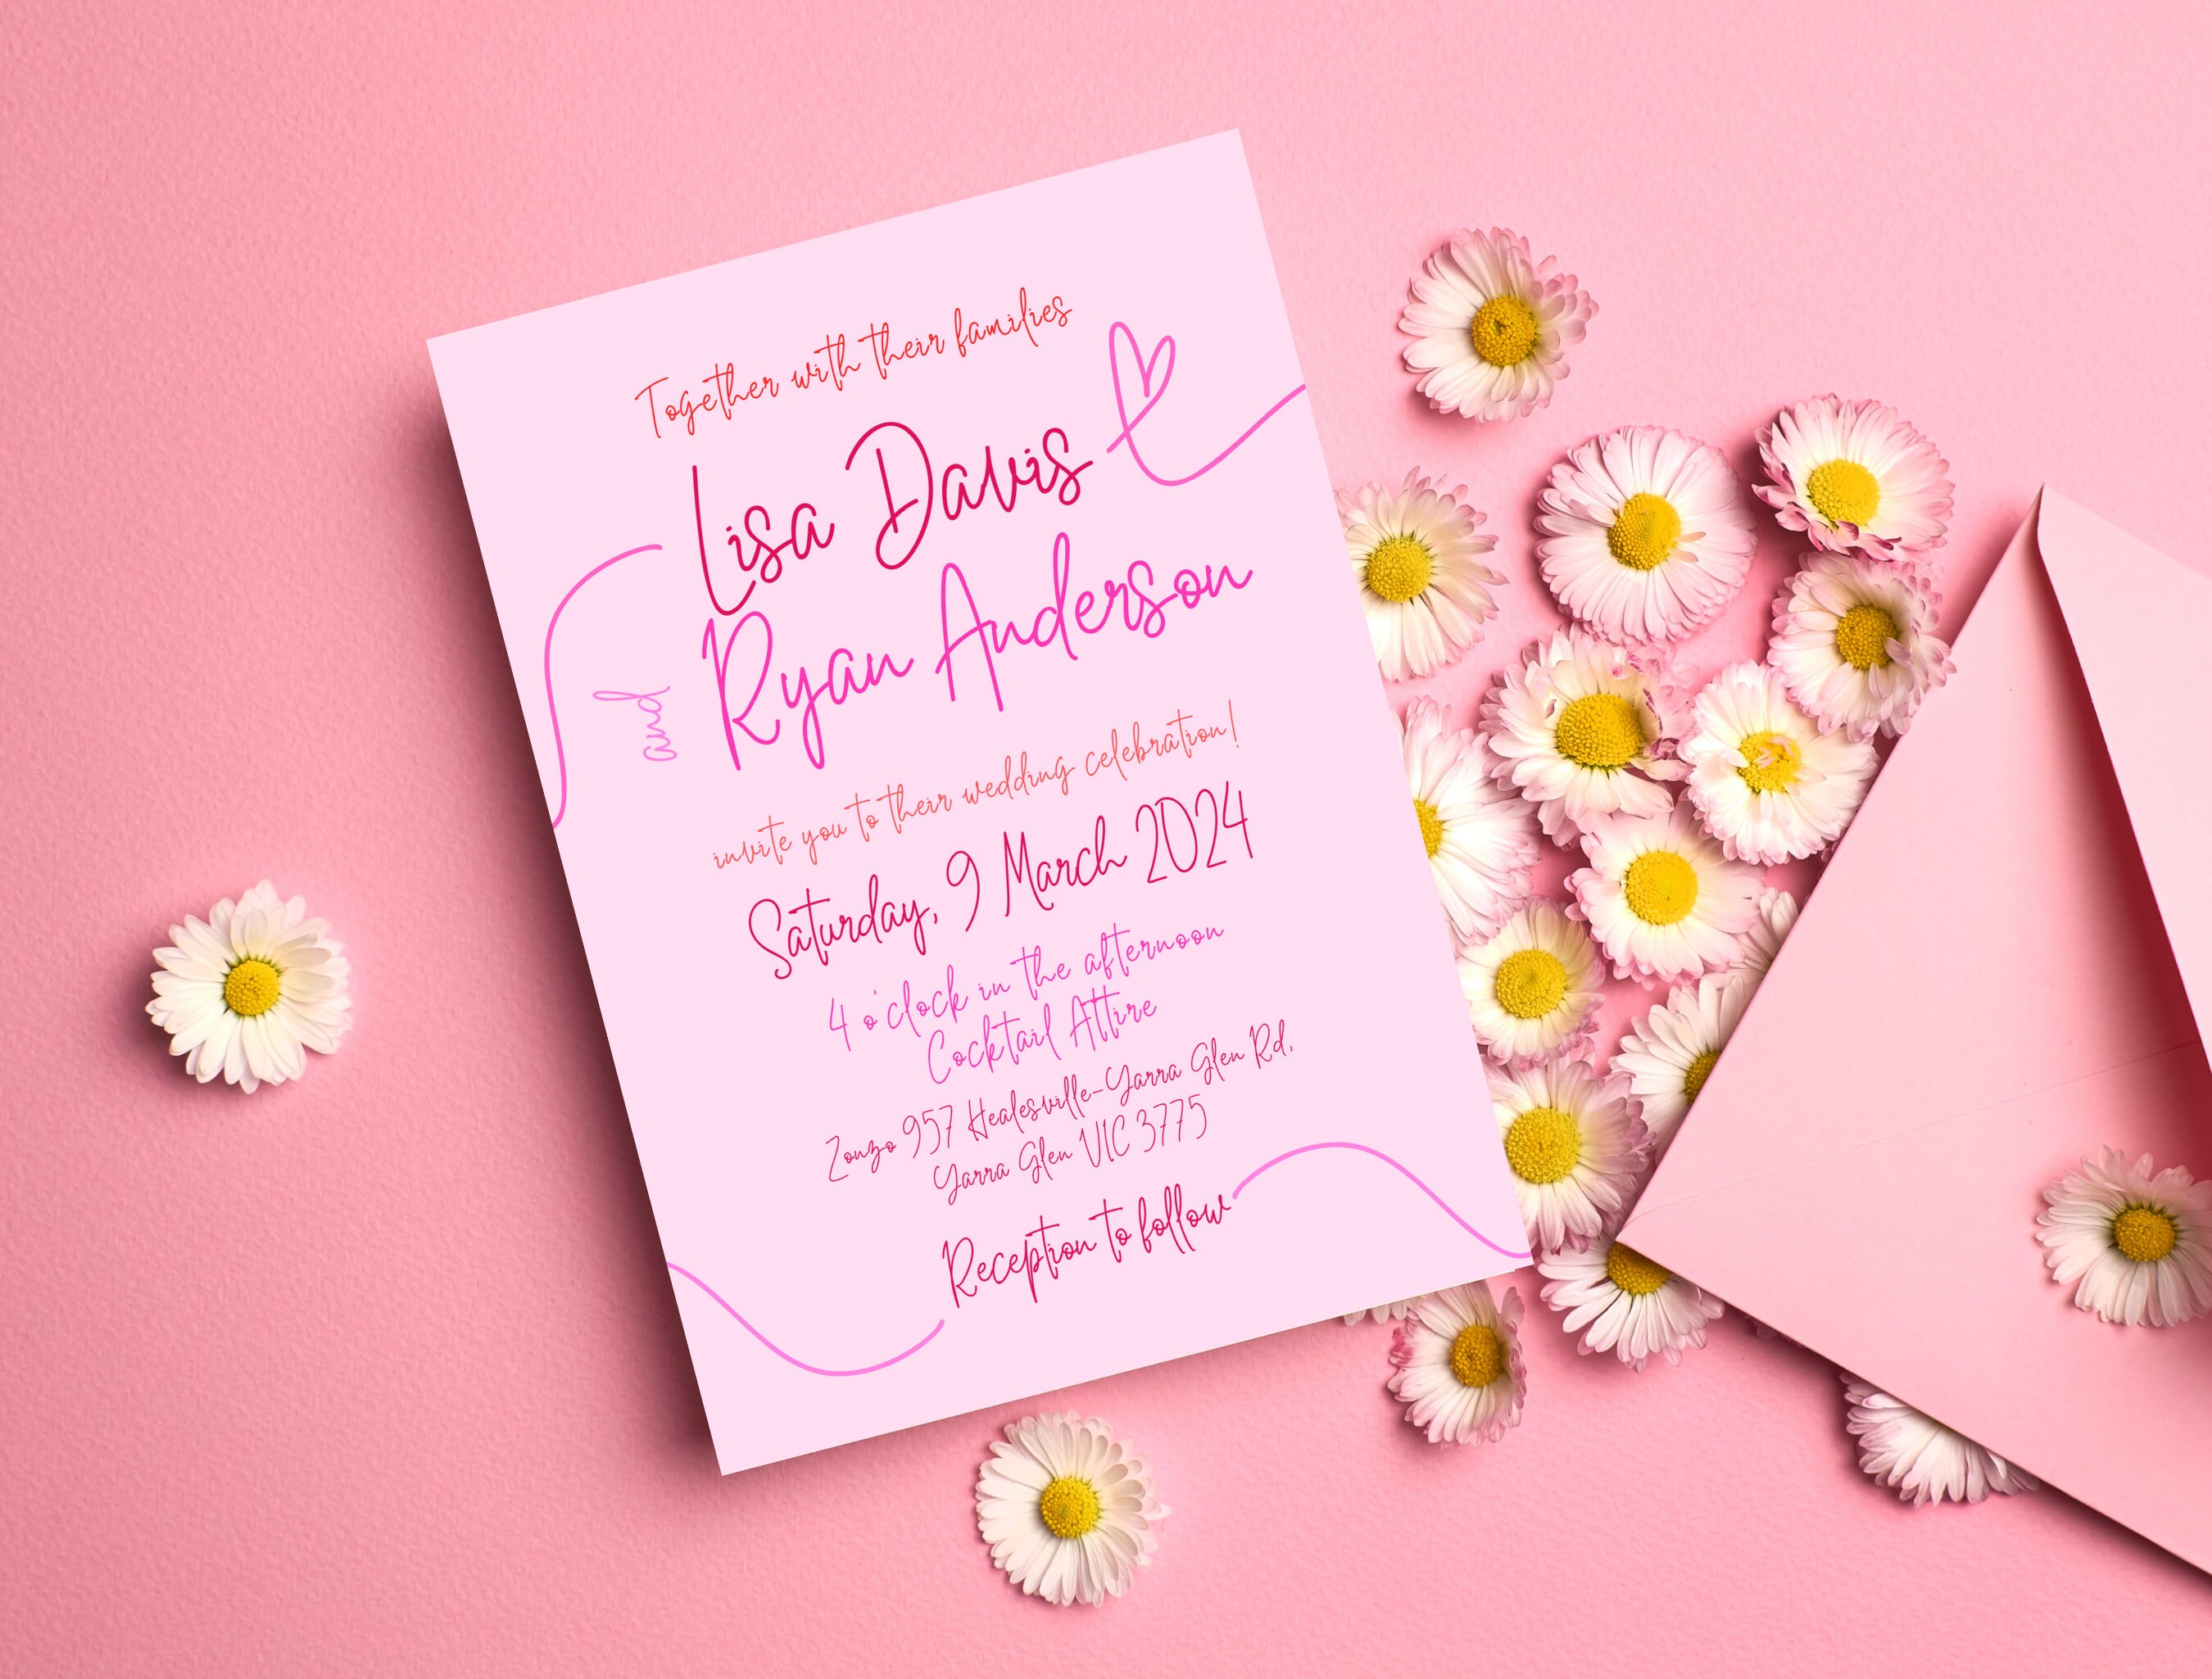 Together with their families
Lisa Davis
and
Ryan Anderson
invite you to their wedding celebration!
Saturday, 9 March 2024
4 o'clock in the afternoon
Cocktail Attire
Zonzo 957 Healesville-Yarra Glen Rd,
Yarra Glen VIC 3775
Reception to follow